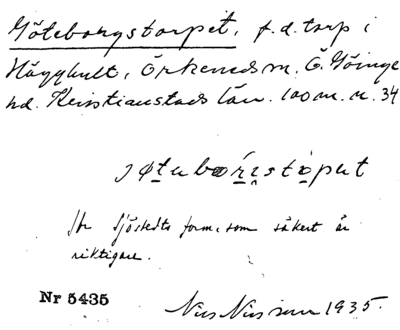 Göteborgstorpet, f.d. torp i
Hägghult, Örkeneds sn. Ö. Göinge
hd. Kristianstads län. 100 m. n. 34
Jfr Sjöstedts form, som säkert är
riktigare.
Nr 5435
Nils Nilsson 1935.